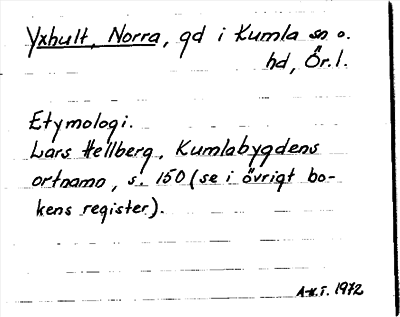 Yxhult, Norra, gd i Kumla sn o.
hd, Ör.l.
Etymologi.
Lars Hellberg, Kumlabygdens
ortnamn, s. 150 (se i övrigt bo-
kens register).
A-K.T. 1972